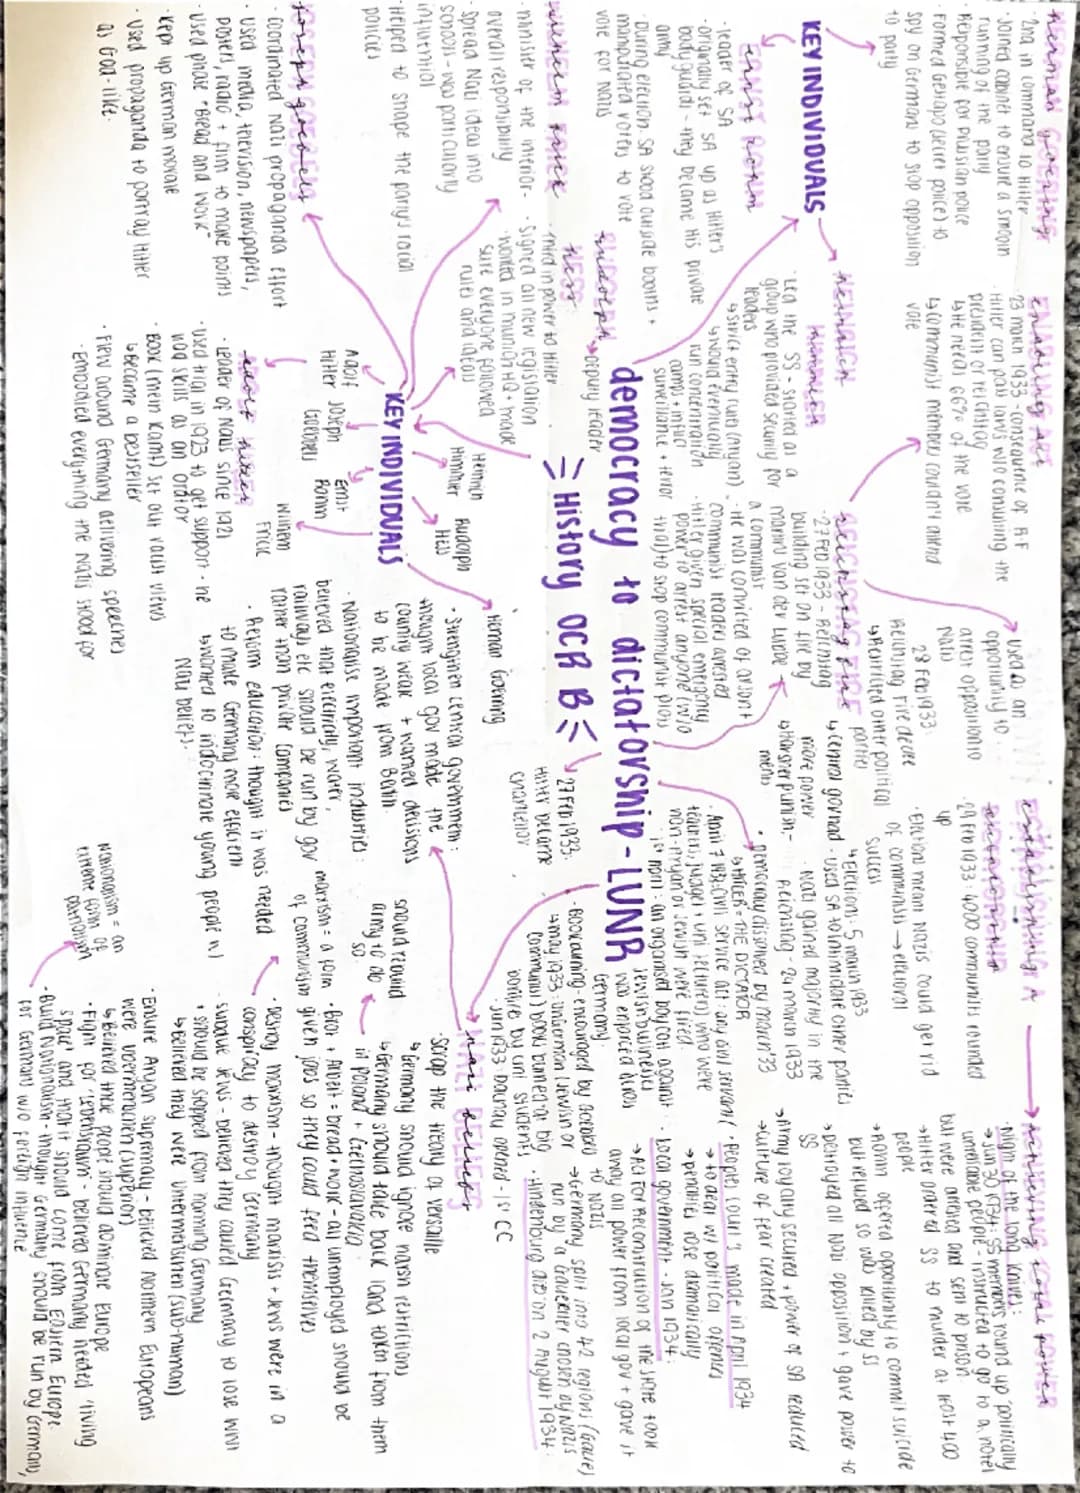 democracy to dictatorship - LUNR
History OCR B
KEY INDIVIDUALS
Herman Goering
· 2nd in command to Hitler
· Joined cabinet to ensure a smooth
running of the party
· Responsible for Prussian police
· Formed Gestapo (secret police) to
spy on Germans to stop opposition
to party
ERNST ROHM
· leader of SA
· originally set SA up as Hitler's
bodyguards - they became his private
army
· During election: SA stood outside booths +
manipulated voters to vote
vote for Nazis
HEINRICH
HIMMLER
· Led the SS - started as a
group who provided security for
leaders
↳ strict entry rules (aryan)
↳ would eventually
run concentration
camps + enforce
surveillance + terror
RUDOLPH → deputy leader
HESS
· third in power to Hitler
· Signed all new legislation
· worked in munich HQ + made
sure everyone followed
rules and ideas
WILHELM FRICK
· minister of the interior-
overall responsibility
· Spread Nazi ideas into
schools - was particularly
influential
· Helped to shape the party's racial
policies
Joseph goebbels
· Coordinated Nazi propaganda effort
· Used media, television, newspapers,
posters, radio + film to make points
· Used phase "Bread and Work"
· Kept up German morale
· Used propaganda to portray Hitler
as God-like.
KEY INDIVIDUALS
Adolf
Hitler
Joseph
Goebbels
Ernst
Rohm
Wilhelm
Frick
Heinrich
Himmler
Rudolph
Hess
Herman Goering
adolf hitler
· Leader of Nazis since 1921
· Used trial in 1923 to get support - he
had skill as an orator
· Book (mein Kamf) set out racist views
↳ Became a bestseller
· Flew around Germany delivering speeches
· Embodied everything the Nazis stood for
ENABLING ACT
23 march 1933 - consequence of RF
· Hitler can pass laws w/o consulting the
president or reichstag
↳ He needs 66% of the vote
↳ Communist members couldn't attend
vote
REICHSTAG FIRE
· 27 Feb 1933 - Reichstag
building set on fire by
marinus van der lubbe →
a communist
· He was convicted of arson +
communist leaders arrested
· Hitler given special emergency
power to arrest anyone (w/o
trial) to stop communist plots
↳ Harsher punish-
ments
→ Used as an
opportunity to
arrest opposition to
Nazis
28 Feb 1933:
Reichstag Fire decree
↳ Restricted other political
parties
↳ Central gov had
more power
ESTABLISHING A
DICTATORSHIP
· 28 Feb 1933: 4000 communists rounded
up
· Election meant Nazis could get rid
of communists → electoral
success
↳ Elections: 5 march 1933
· Used SA to intimidate other parties
· Nazis gained majority in the
Reichstag - 24 march 1933
· Democracy dissolved by march '33
↳ HITLER = THE DICTATOR
· April 7 1933: Civil service act: any civil servant /
teachers, judges + uni lecturers) who were
non-aryan or Jewish were fired.
· 1st April: an organised boycott against
Jewish businesses
was enforced across
Germany
· Book burning - encouraged by Goebbels
↳ may 1933: UnGerman (Jewish or
Communist) books burned at big
bonfire by uni students
· Jan 1933: Dachau opened - 1st CC
27 Feb 1933:
Hitler became
chancellor
ACHIEVING total power
· Night of the long knives:
→ Jun 30 1934: SS members round up politically
unreliable people - instructed to go to a hotel
but were arrested and sent to prison.
→ Hitler ordered SS to murder at least 400
people
→ Rohm offered opportunity to commit suicide
but refused so was killed by SS
→ Destroyed all Nazi opposition + gave power to
SS
→ Army loyalty secured + power of SA reduced
→ Culture of fear created
· People's Court's made in April 1934
→ to deal w/ political opposers
→ penalties rose dramatically
· Local government - Jan 1934:
→ Act for Reconstruction of the state took
away all power from local gov + gave it
to NAZIS
→ Germany split into 42 regions (Gaue)
run by a Gauleiter chosen by Nazis
· Hindenburg died on 2 August 1934.
nazi beliefs
· Scrap the treaty of versaille
↳ Germany should ignore harsh restrictions
↳ Germany should take back land taken from them
in poland + Czechoslovakia
should rebuild
army to do
so
· Brot + Arbeit = bread + work - all unemployed should be
given jobs so they could feed themselves
· Destroy marxism - thought marxists + Jews were in a
conspiracy to destroy Germany
marxism = a form
of communism
· Subdue Jews - believed they caused Germany to lose WWI
+ should be stopped from harming Germany
↳ Believed they were Untermenschen (sub-human)
· Ensure Aryan Supremacy - believed northern Europeans
were Übermenschen (superior)
↳ Believed these people should dominate Europe
· Fight for 'lebensraum' - believed Germany needed 'living
space' and that it should come from Eastern Europe.
· Build Nationalism - thought Germany should be run by Germans,
for Germans w/o foreign influence
Nationalism = an
extreme form of
patriotism
· Strengthen central government:
thought local gov made the
country weak + wanted decisions
to be made from Berlin
· Nationalise important industries:
believed that electricity, water,
railways etc should be run by gov
rather than private companies
· Reform education: thought it was needed
to make Germany more efficient
↳ Wanted to indoctrinate young people w/
Nazi beliefs.